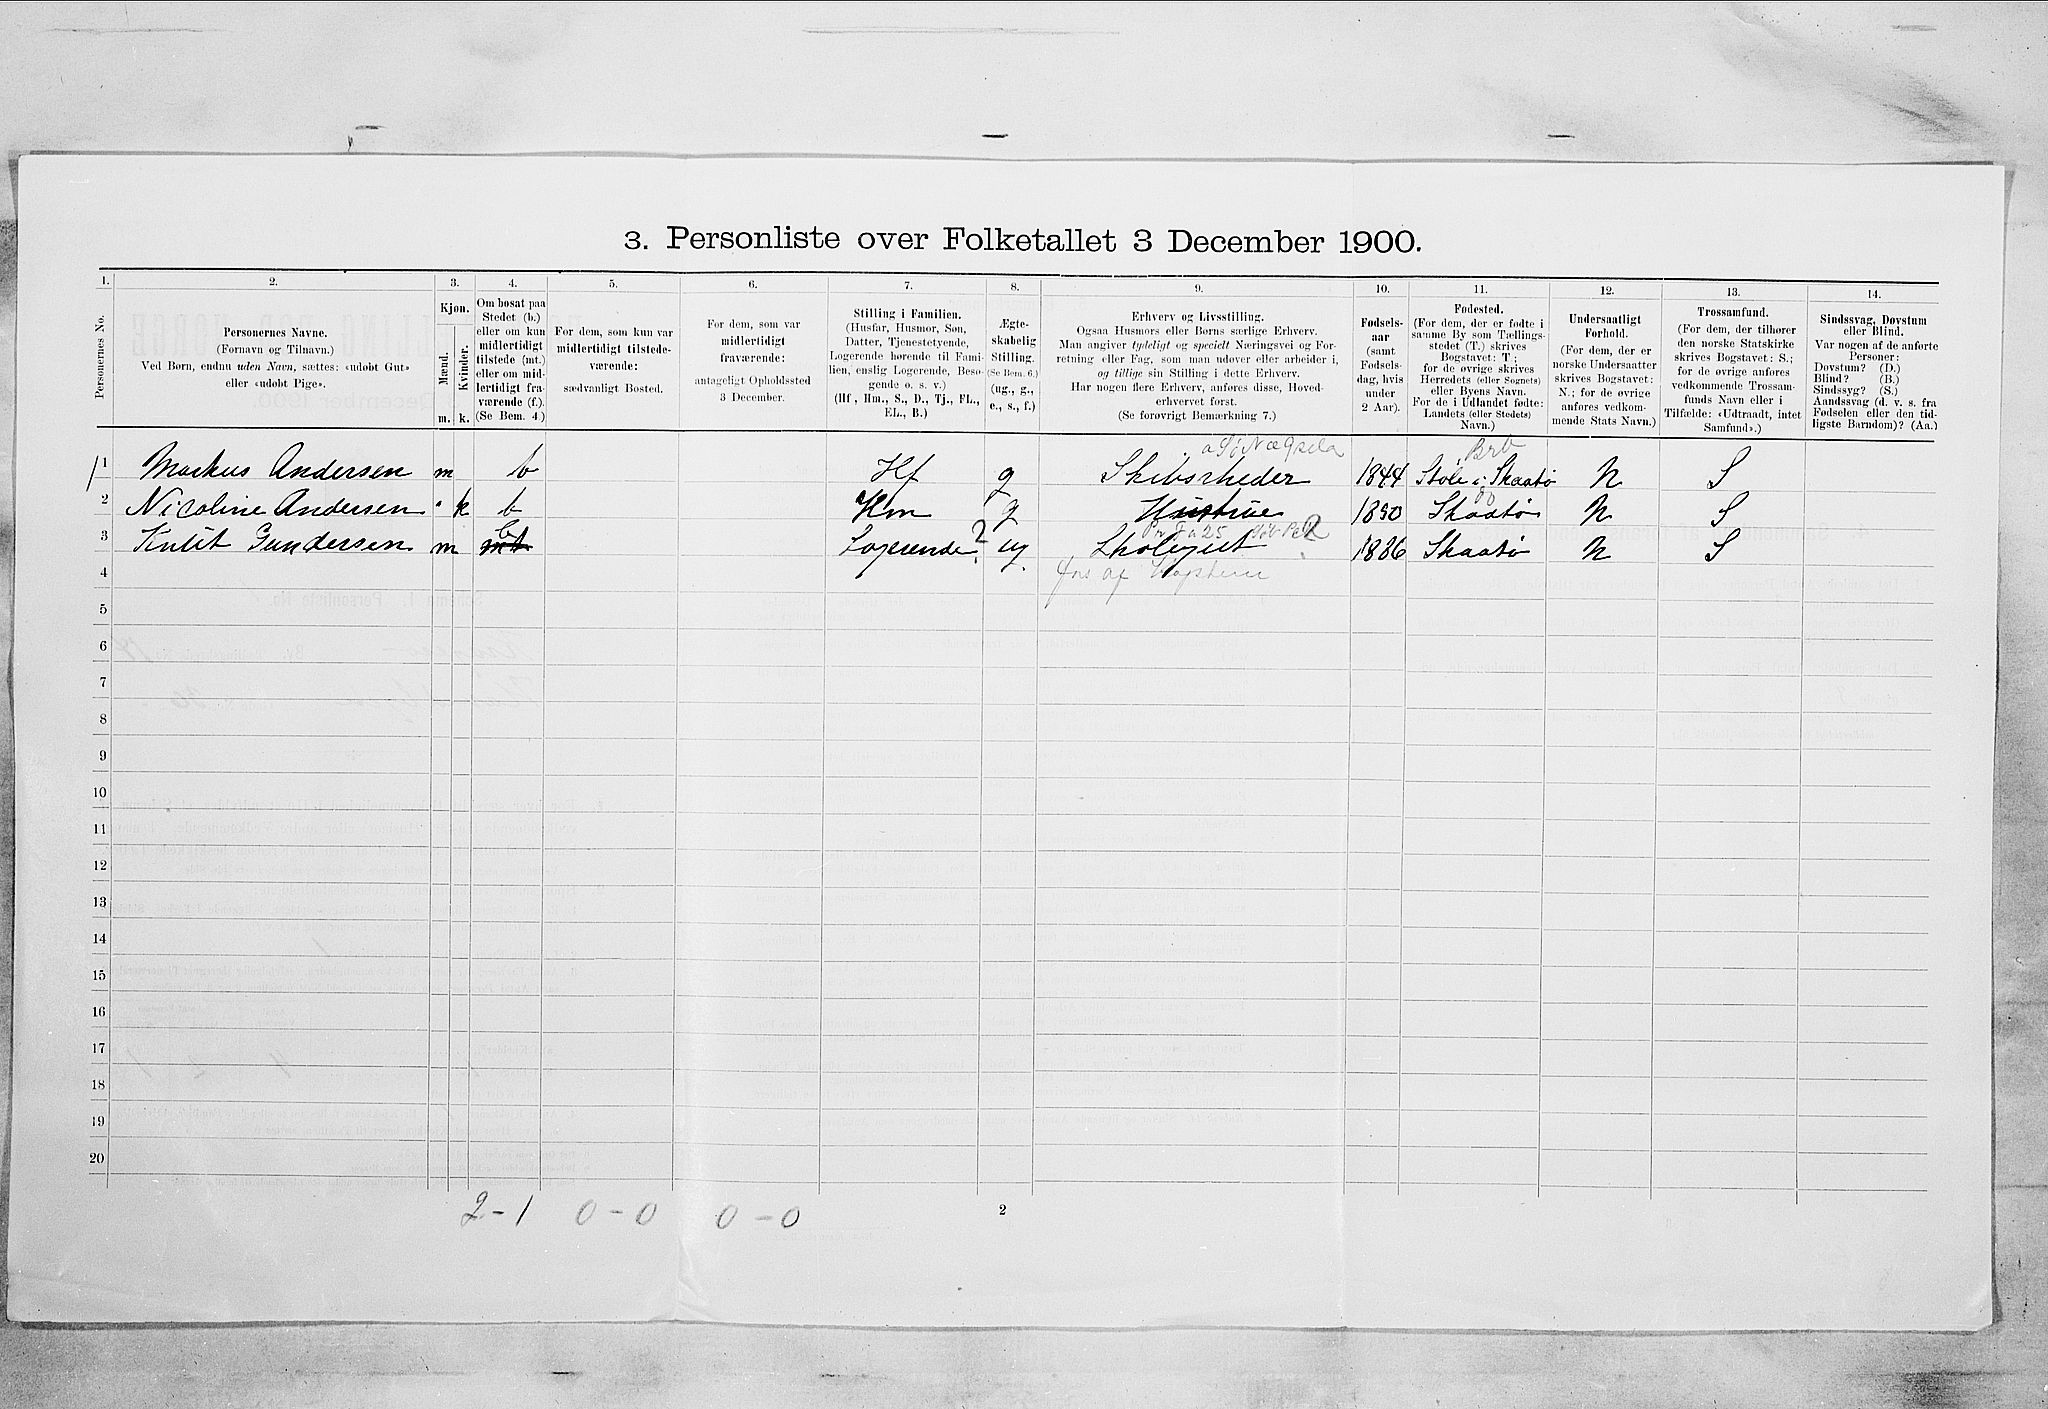 3. Personliste over Folketallet 3 December 1900.
1.
2.
3.
4.
5.
6.
7.
8.
9.
10.
11.
12.
13.
14.
Personernes No.
Personernes Navne.
(Fornavn og Tilnavn.)
Ved Børn, endnu uden Navn, sættes: «udøbt Gut»
eller «udøbt Pige».
Kjøn.
Mænd.
Kvinder.
m.
k.
Om bosat paa
Stedet (b.)
eller om kun
midlertidigt
tilstede (mt.)
eller om mid-
lertidigt fra-
værende (f.).
(Se Bem. 4.)
For dem, som kun var
midlertidigt tilstede-
værende:
sædvanligt Bosted.
For dem, som var
midlertidigt
fraværende:
antageligt Opholdssted
3 December.
Stilling i Familien.
(Husfar, Husmor, Søn,
Datter, Tjenestetyende,
Logerende hørende til Fami-
lien, enslig Logerende, Besø-
gende o. s. v.)
(Hf, Hm., S., D., Tj., FL.,
EL., B.)
Ægte-
skabelig
Stilling.
(Se Bem. 6.)
(ug., g.,
e., s., f.)
Erhverv og Livsstilling.
Ogsaa Husmors eller Børns særlige Erhverv.
Man angiver tydeligt og specielt Næringsvei og For-
retning eller Fag, som man udøver eller arbeider i,
og tillige sin Stilling i dette Erhverv.
Har nogen flere Erhverv, anføres disse, Hoved-
erhvervet først.
(Se forøvrigt Bemærkning 7.)
Fødsels-
aar
(samt
Fødsels-
dag, hvis
under
2 Aar).
Fødested.
(For dem, der er fødte i
samme By som Tællings-
stedet (T.) skrives
Bogstavet: T ;
for de øvrige skrives
Herredets (eller Sognets)
eller Byens Navn.
For de i Udlandet fødte:
Landets (eller Stedets)
Navn.)
Undersaatligt
Forhold.
(For dem, der er
norske Undersaatter
skrives Bogstavet:
N.; for de øvrige
anføres vedkom-
mende Stats Navn.)
Trossamfund.
(For dem, der tilhører
den norske Statskirke
skrives Bogstavet: S.;
for de øvrige anføres
vedkommende Trossam-
funds Navn eller i
Tilfælde: «Udtraadt, intet
Samfund».)
Sindssvag, Døvstum
eller Blind.
Var nogen af de anførte
Personer:
Døvstum? (D.)
Blind? (B.)
Sindssyg? (S.)
Aandssvag (d. v. s. fra
Fødselen eller den tid-
ligste Barndom)? (Aa.)
1 Markus Andersen m b Hf g Skibsrheder 1844 Støle i Skaatø N S
2 Nicoline Andersen k b Hm g Hustrue 1850 Skaatø N S
3 Knut Gundersen m b mt Logerende? ug. Skolegut ? 1886 Skaatø N S
4
5
6
7
8
9
10
11
12
13
14
15
16
17
18
19
20
2-1 0-0 0-0
2